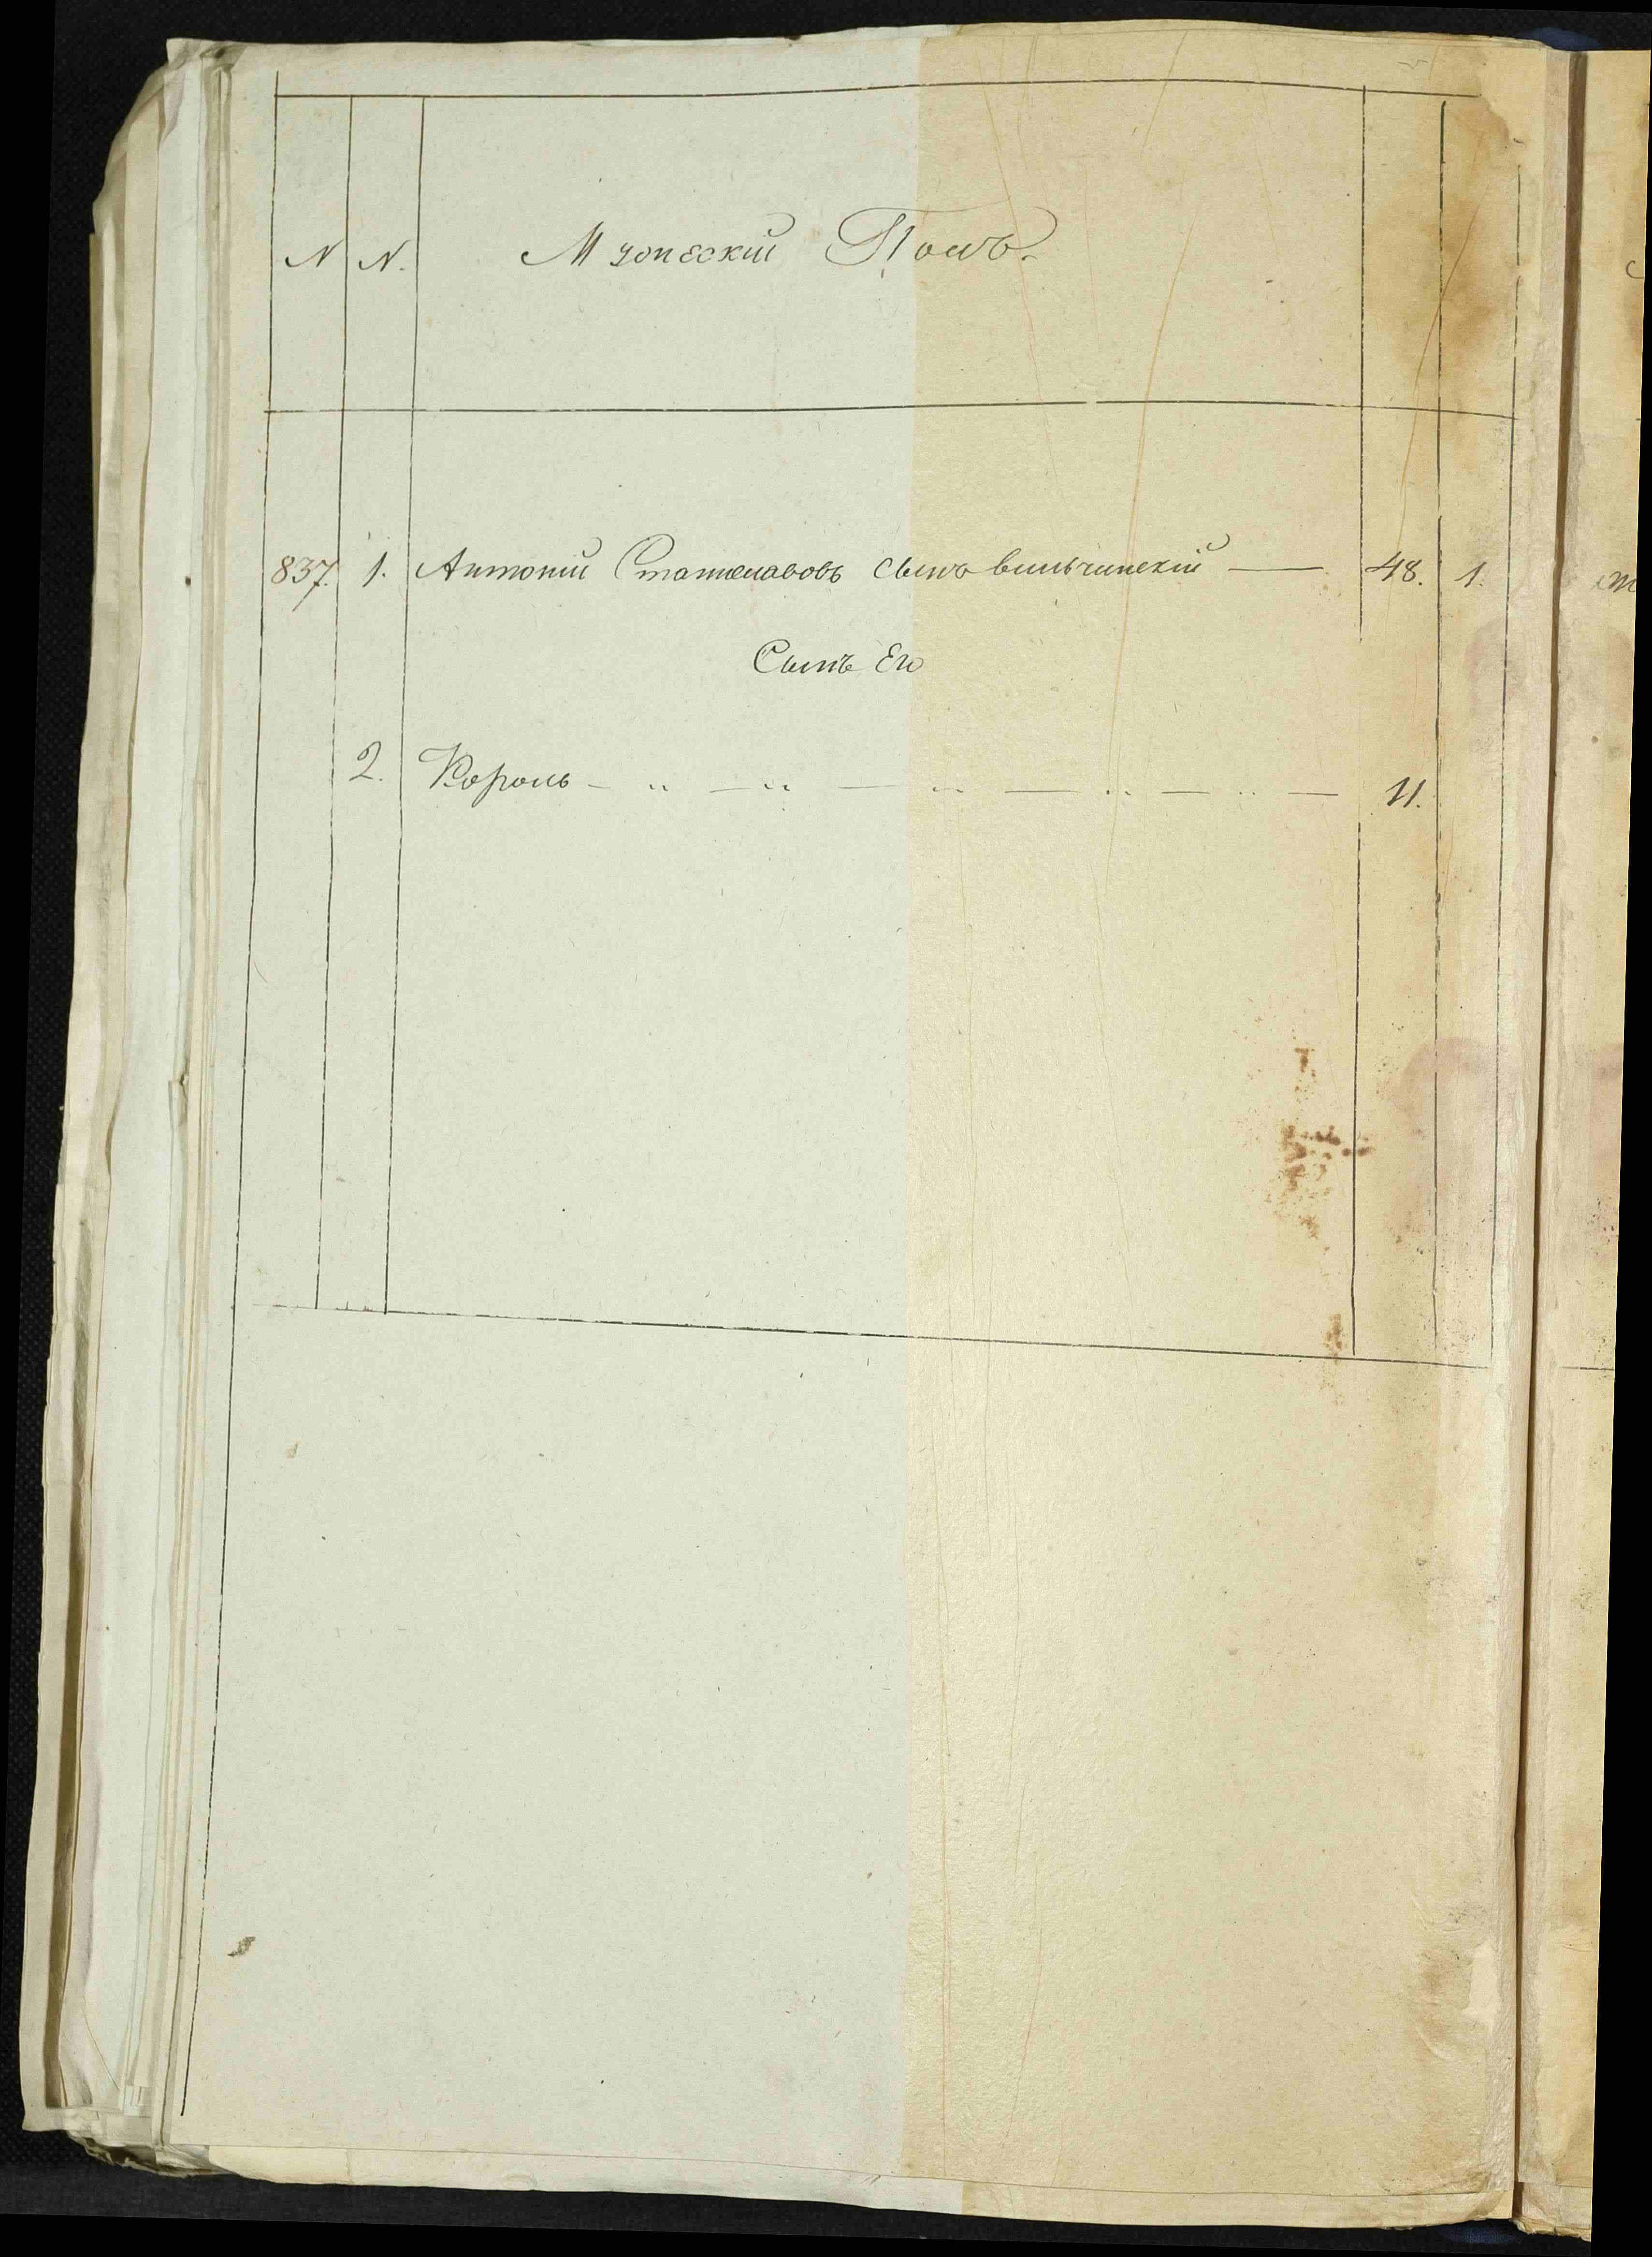 N N. Мужескій Полъ.
837. 1. Антоній Станиславовъ сынъ вильчинскій — 48. 1.
Сынъ Его
2. Король - " - " - " - " - " - 11.